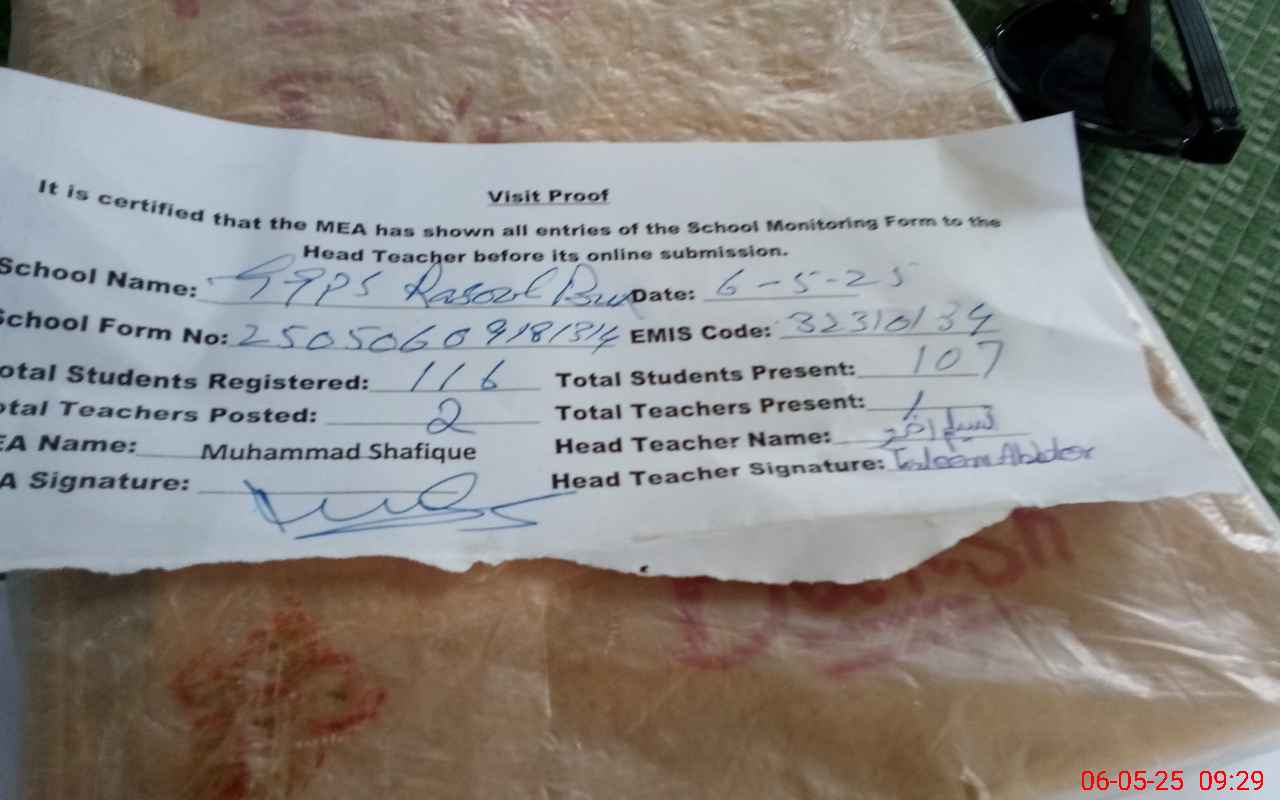 Visit Proof
It is certified that the MEA has shown all entries of the School Monitoring Form to the
Head Teacher before its online submission.
School Name: GGPS Rasool Bux Date: 6-5-25
School Form No: 2505060918134 EMIS Code: 32310134
otal Students Registered: 116 Total Students Present: 107
otal Teachers Posted: 2 Total Teachers Present: 1
EA Name: Muhammad Shafique Head Teacher Name:
A Signature: Head Teacher Signature:
06-05-25 09:29